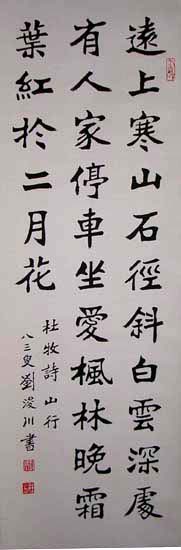 遠上寒山石徑斜白雲深處
有人家停車坐愛楓林晚霜
葉紅於二月花
杜牧詩 山行
八三叟劉浚川書